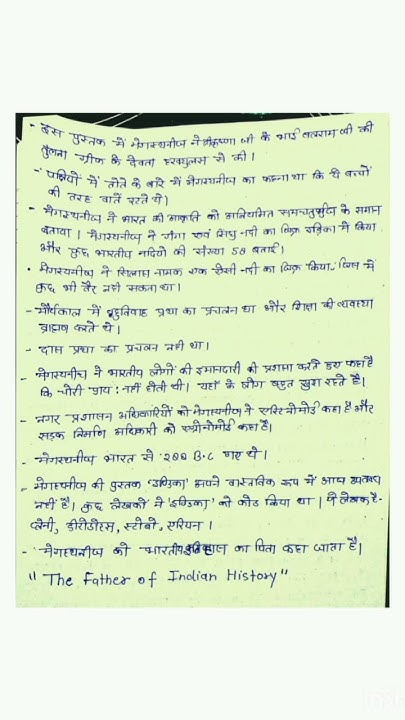 - इस पुस्तक में मेगस्थनीज ने श्रीकृष्णा जी के भाई बलराम जी की
तुलना ग्रीक के देवता हरक्युलस से की।
- पक्षियों में तोते के बारे में मेगस्थनीज का कहना था कि ये बच्चों
की तरह बातें करते थे।
- मेगस्थनीज ने भारत की आकृति को अनियमित समचतुर्भुज के समान
बताया। मेगस्थनीज ने गंगा एवं सिंधु नदी का जिक्र इंडिका में किया
और कुछ भारतीय नदियों की संख्या 58 बताई।
- मेगस्थनीज ने सिलास नामक एक ऐसी नदी का जिक्र किया जिस में
कुछ भी तैर नहीं सकता था।
- मौर्यकाल में बहुविवाह प्रथा का प्रचलन था और शिक्षा की व्यवस्था
ब्राह्मण करते थे।
- दास प्रथा का प्रचलन नहीं था।
- मेगस्थनीज ने भारतीय लोगों की ईमानदारी की प्रशंसा करते हुए कहा है
कि चोरी प्राय: नहीं होती थी। यहाँ के लोग बहुत खुश रहते हैं।
- नगर प्रशासन अधिकारियों को मेगस्थनीज ने एस्टिनोमोई कहा है और
सड़क निर्माण अधिकारी को एग्रोनोमोई कहा है।
- मेगस्थनीज भारत से २०० B.C गए थे।
- मेगस्थनीज की पुस्तक 'इण्डिका' अपने वास्तविक रूप में आज उपलब्ध
नहीं है। कुछ लेखकों ने 'इण्डिका' को कोड किया था। ये लेखक है-
प्लेनी, डीरोडोटस, स्ट्रैबो, एरियन।
- मेगस्थनीज को भारतीय इतिहास का पिता कहा जाता है।
"The Father of Indian History"